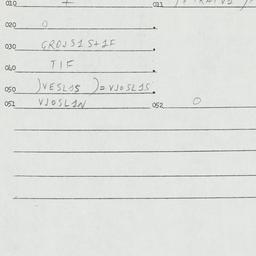 010
011
020 0
030 GROJS1S+1F
040 TIF
050 )VESL1S )=VJOSL1S
051 VJOSL1N 052 0